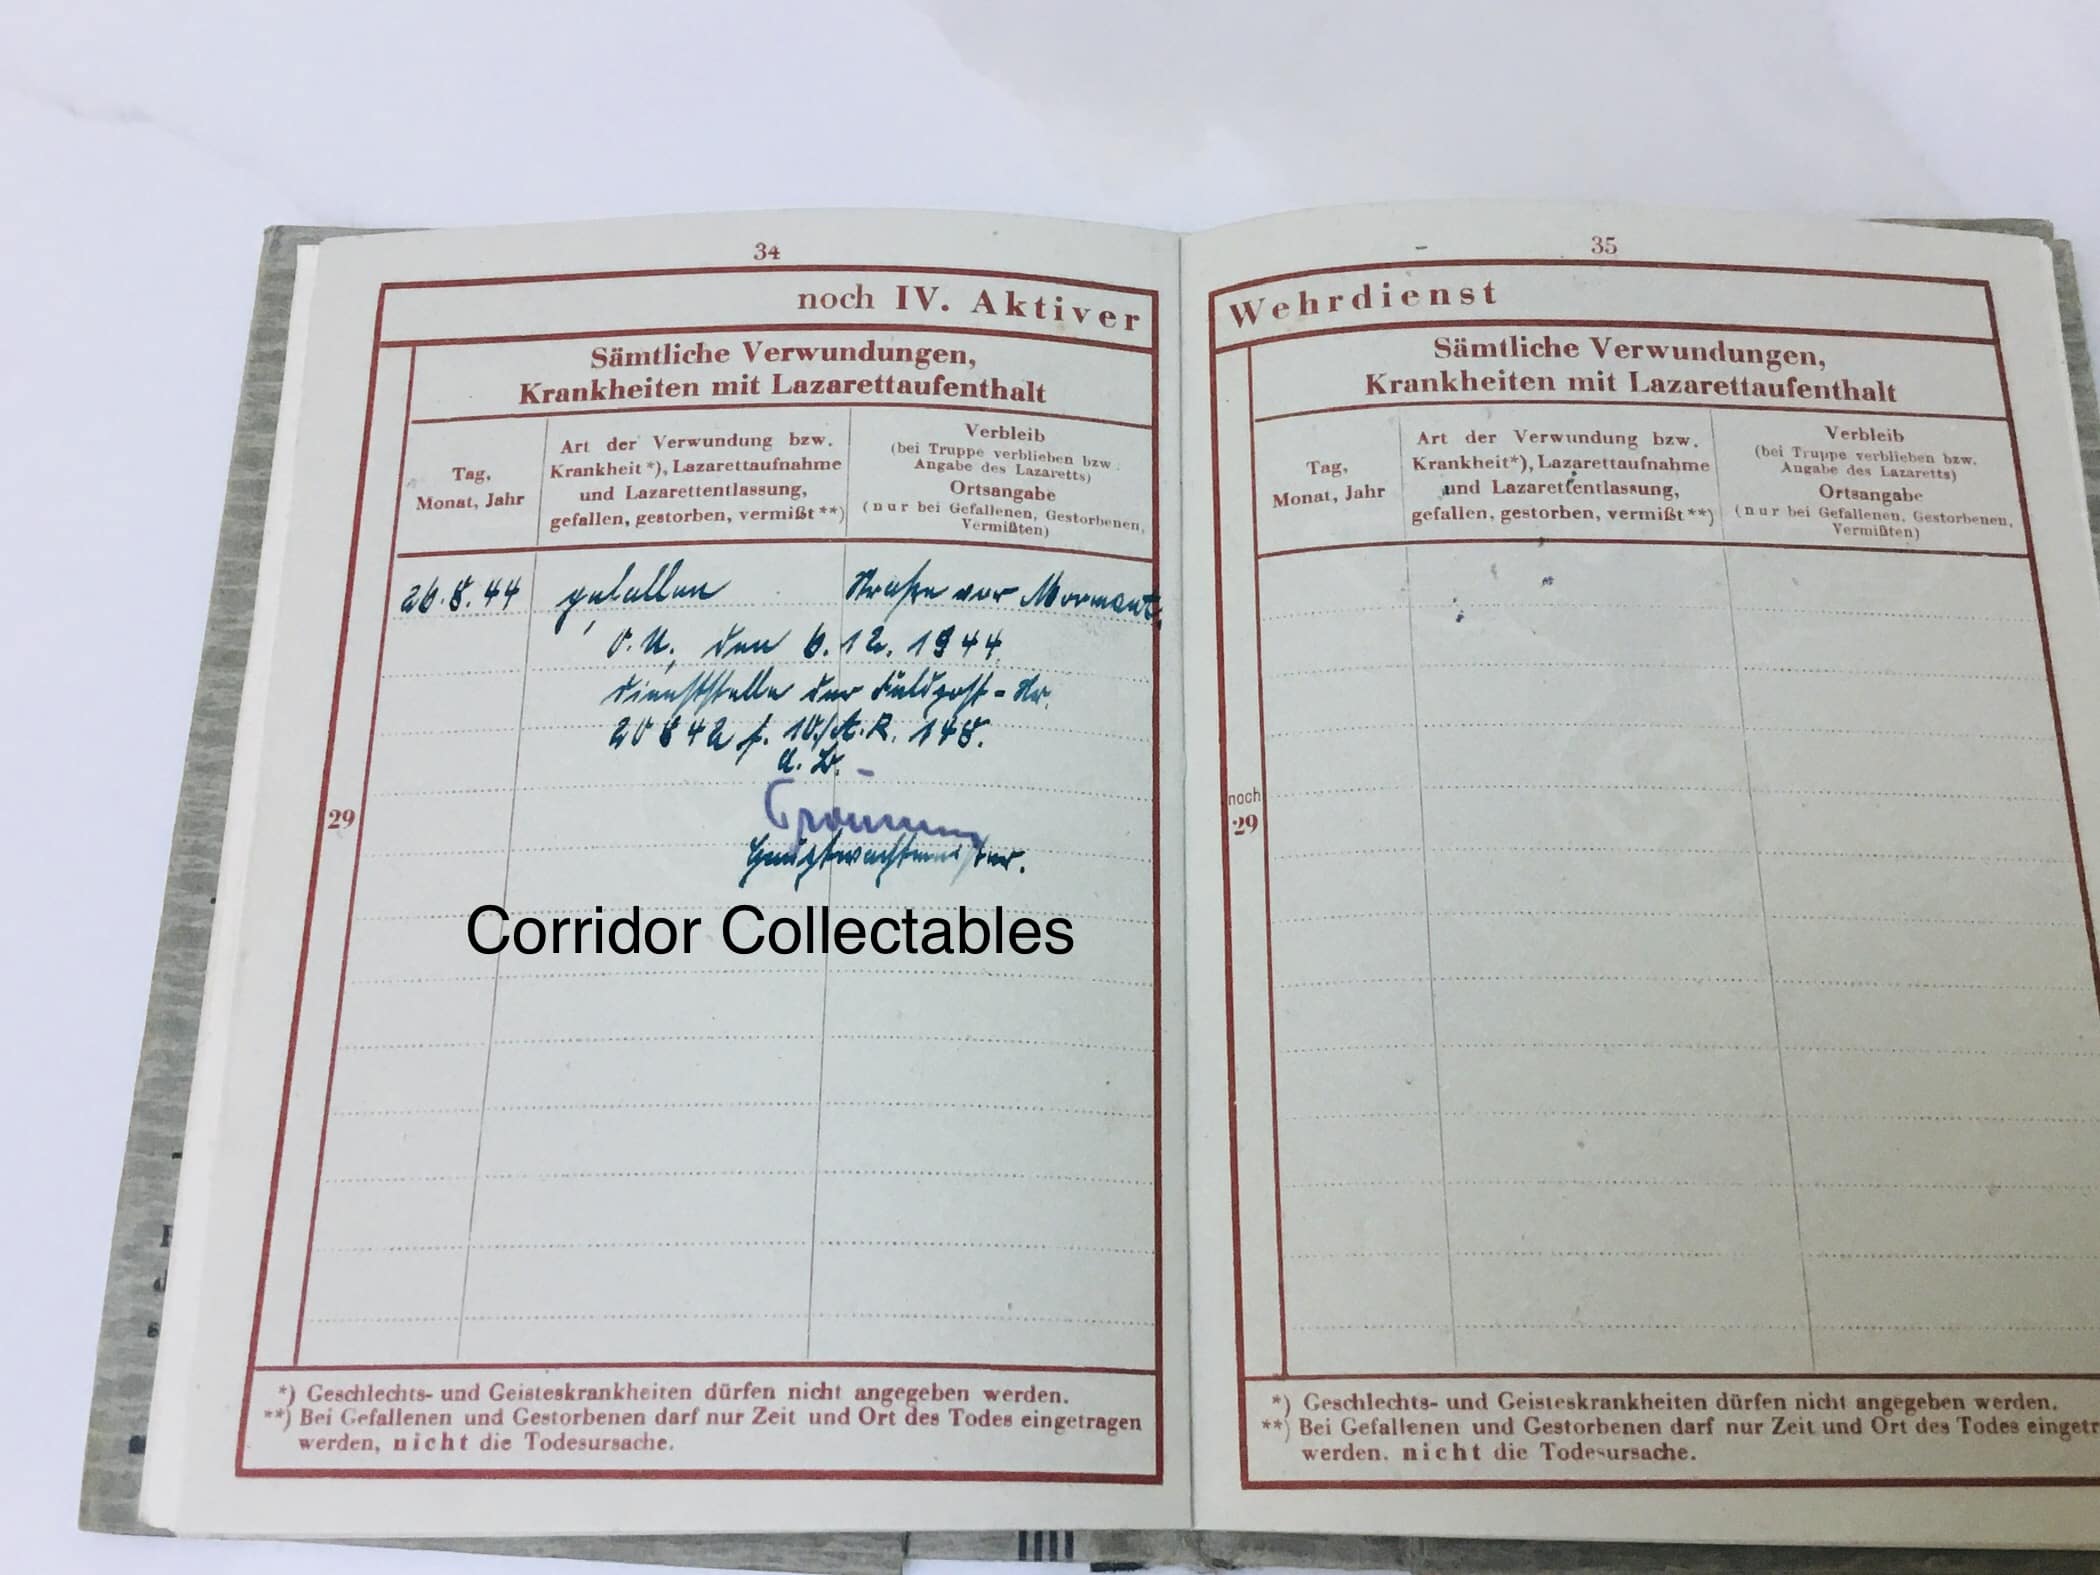 34
noch IV. Aktiver
Sämtliche Verwundungen,
Krankheiten mit Lazarettaufenthalt
Tag,
Monat, Jahr
Art der Verwundung bzw.
Krankheit*), Lazarettaufnahme
und Lazarettentlassung,
gefallen, gestorben, vermißt**)
Verbleib
(bei Truppe verblieben bzw.
Angabe des Lazaretts)
Ortsangabe
(nur bei Gefallenen, Gestorbenen,
Vermißten)
26.8.44 gefallen Straße vor Mormant.
O.U., den 6.12.1944
Dienststelle der Feldpost-Nr.
20842 f. 10./A.R. 148.
29
Hauptwachtmeister.
Corridor Collectables
*) Geschlechts- und Geisteskrankheiten dürfen nicht angegeben werden.
**) Bei Gefallenen und Gestorbenen darf nur Zeit und Ort des Todes eingetragen
werden, nicht die Todesursache.
35
Wehrdienst
Sämtliche Verwundungen,
Krankheiten mit Lazarettaufenthalt
Tag,
Monat, Jahr
Art der Verwundung bzw.
Krankheit*), Lazarettaufnahme
und Lazarettentlassung,
gefallen, gestorben, vermißt**)
Verbleib
(bei Truppe verblieben bzw.
Angabe des Lazaretts)
Ortsangabe
(nur bei Gefallenen, Gestorbenen,
Vermißten)
noch
29
*) Geschlechts- und Geisteskrankheiten dürfen nicht angegeben werden.
**) Bei Gefallenen und Gestorbenen darf nur Zeit und Ort des Todes eingetr
werden. nicht die Todesursache.